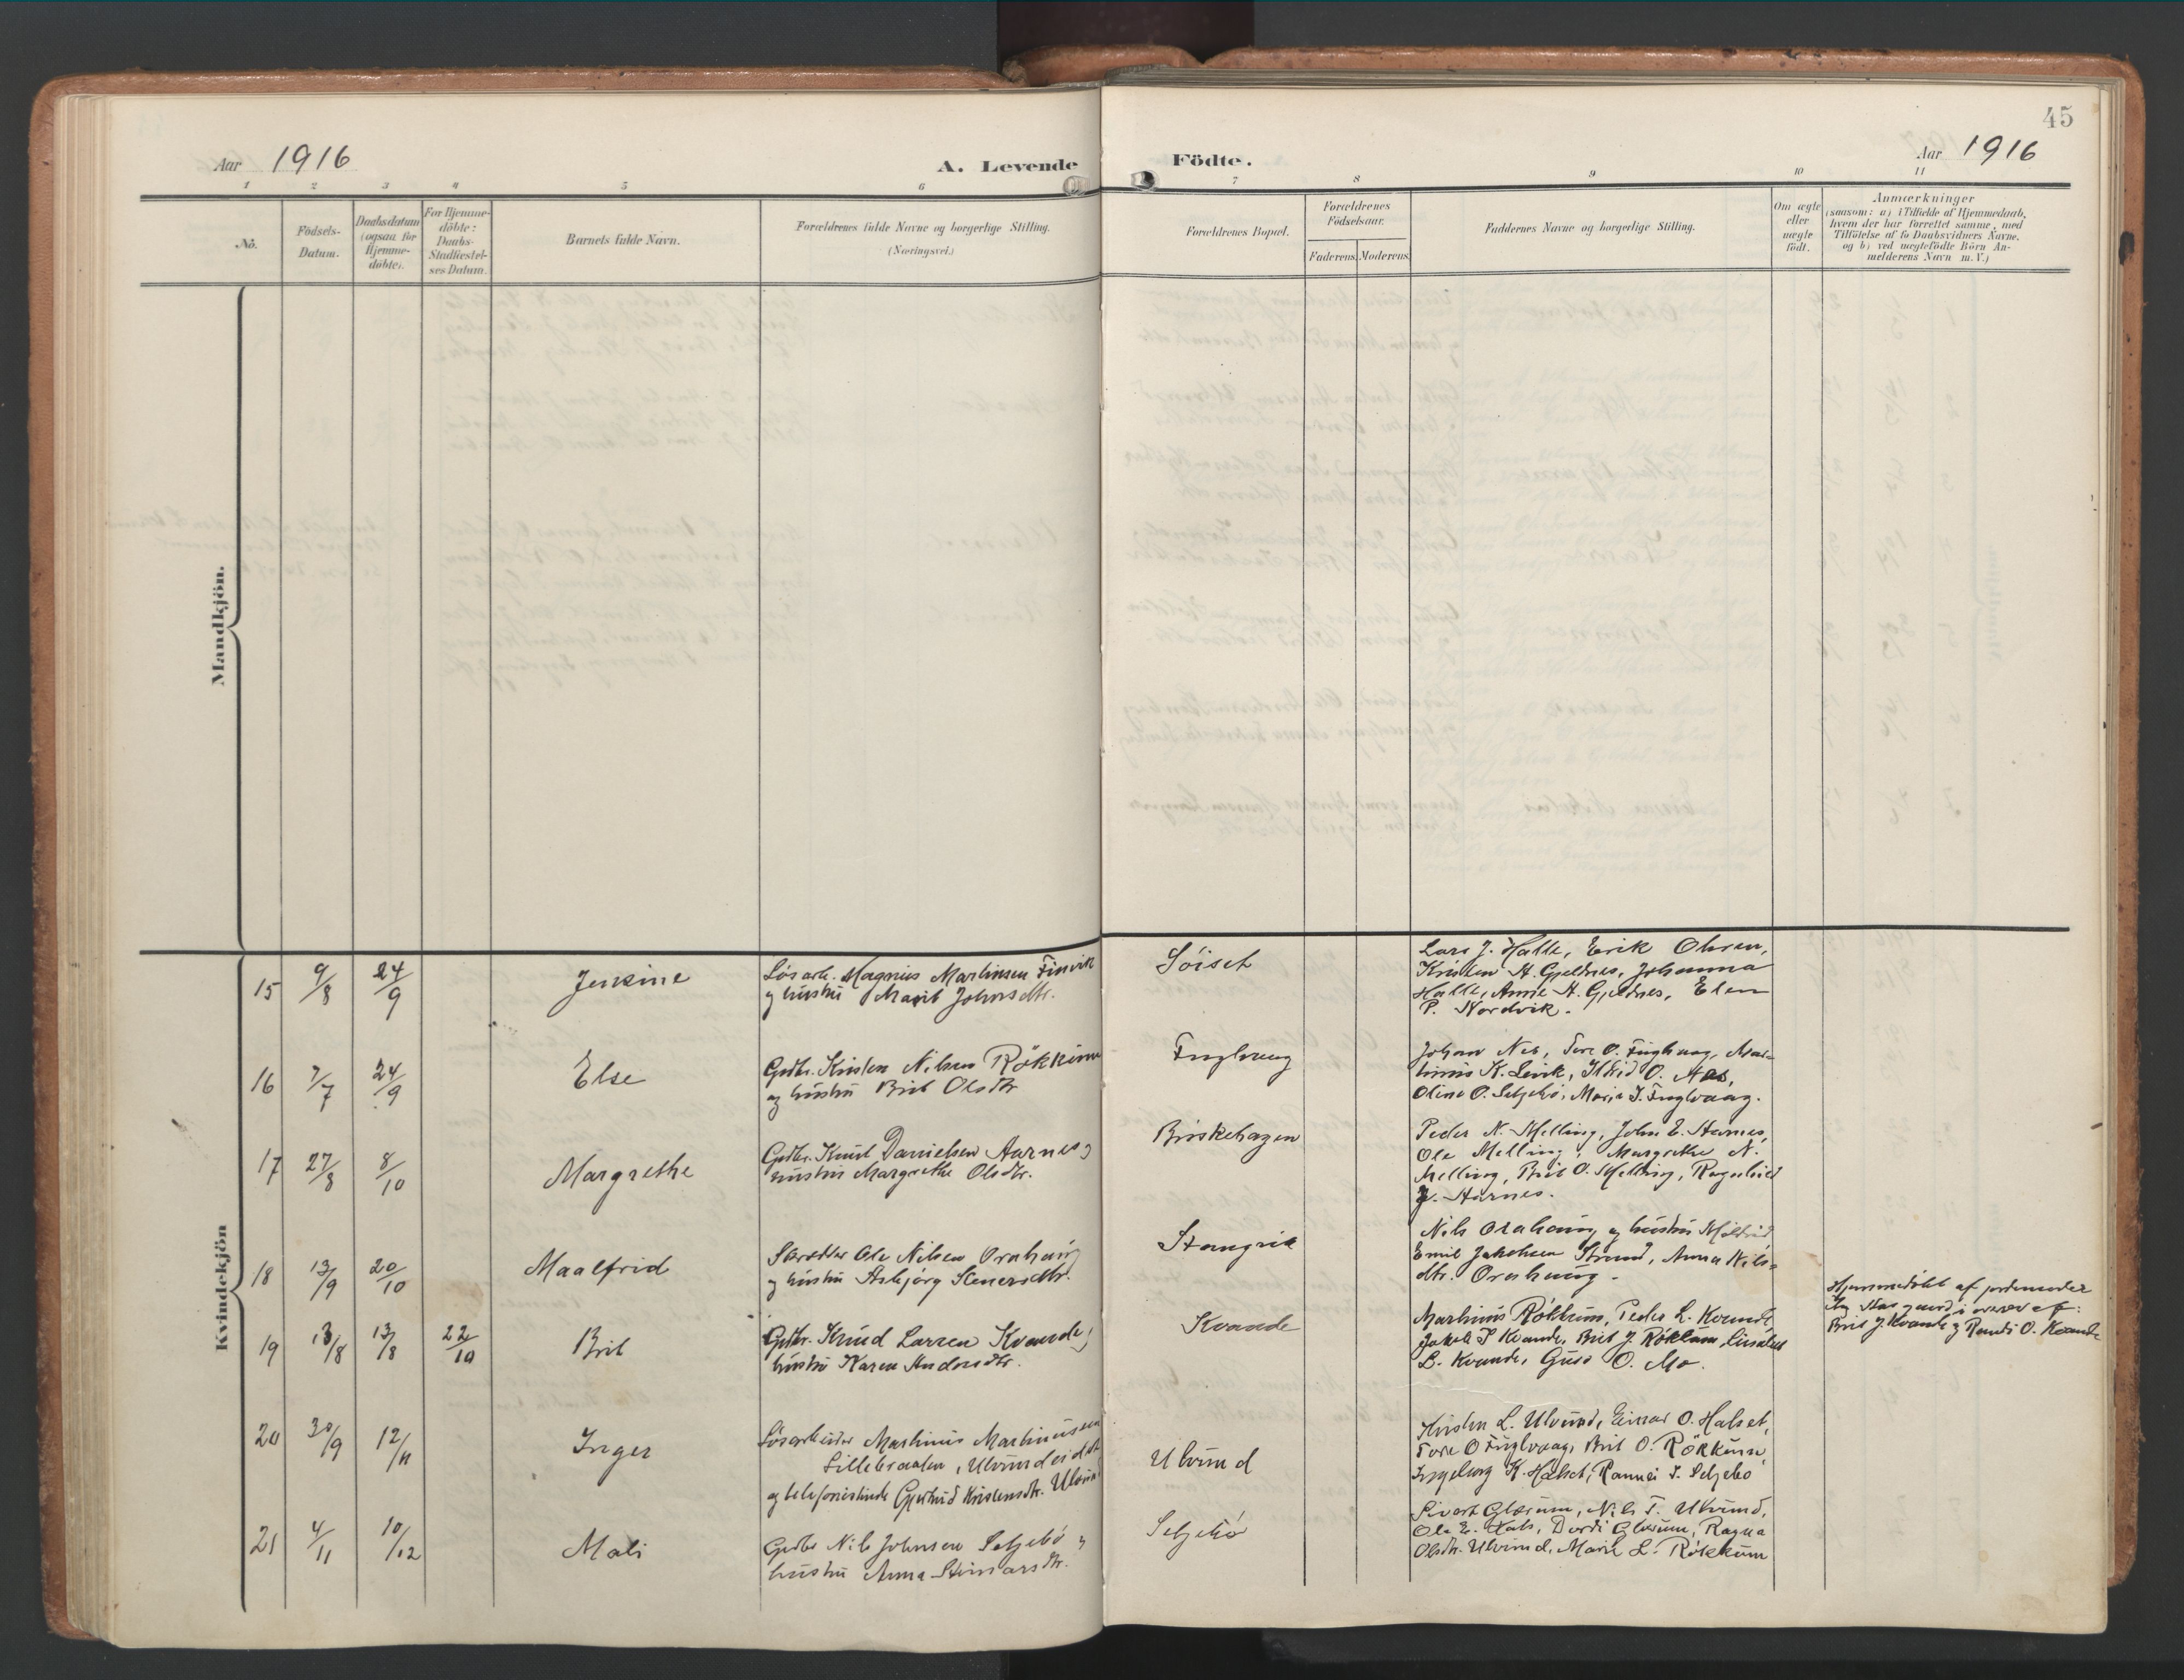 45
Aar 1916 A. Levende Födte. Aar 1916
1 2 3 4 5 6 7 8 9 10 11
No.
Födsels-
Datum.
Daabsdatum
(ogsaa for
Hjemme-
döbte).
For Hjemme-
döbte:
Daabs-
Stadfæstel-
ses Datum.
Barnets fulde Navn.
Forældrenes fulde Navne og borgerlige Stilling.
(Næringsvei.)
Forældrenes Bopæl.
Forældrenes
Födselsaar.
Faderens. Moderens.
Faddernes Navne og borgerlige Stilling.
Om ægte
eller
uægte
födt.
Anmærkninger
(saasom: a) i Tilfælde af Hjemmedaab,
hvem der har forrettet samme, med
Tilföielse af to Daabsvidners Navne,
og b) ved uægtefödte Börn An-
melderens Navn m. V.)
Mandkjön.
Kvindekjön
15 9/8 24/9 Jensine
Lösarb. Magnus Martinsen Finvik
og hustru Marit Johnsdtr.
Söiset
Lars J. Halle, Erik Ohren,
Kristen A. Gjeldnes, Johanna
Halle, Anne A. Gjeldnes, Elen
P. Nordvik.
16 7/7 24/9 Else
Gdbr. Kristen Nilsen Rökkum
og hustru Brit Olsdtr
Fuglvaag
Johan Nes, Tore O. Fuglvaag, Mar-
tinus K. Levik, Ildrid O. Nes,
Oline O. Seljebö, Marie T. Fuglvaag.
17 27/8 8/10 Margrethe
Gdbr. Knut Danielsen Aarnes og
hustru Margrethe Olsdtr.
Birskehagen
Peder N. Melling, John E. Aarnes,
Ole Melling, Margrethe N.
Melling, Brit O. Melling, Ragnhild
J. Aarnes.
18 13/9 20/10 Maalfrid
Ole Nilsen Orahaug
og hustru Asbjörg Steinersdtr.
Stangvik
Nils Orahaug og hustru Målfrid
Emil Jakobsen Strand, Anna Nils-
dtr. Orahaug.
19 13/8 13/8 22/10 Brit
Gdbr. Knud Larsen Kvande og
hustru Karen Andersdtr.
Kvande
Martinus Rökkum, Peder L. Kvande,
Jakob P. Kvande, Brit J. Rökkum, Lisabet
L. Kvande, Guro O. Mo.
Hjemmedöbt af jordemoder
i overvær af:
Brit J. Kvande og Randi O. Kvande
20 30/9 12/11 Inger
Lösarbeider Martinus Martinussen
Lillebraaten, Ulvundeidet
og telefonistinde Gjertrud Kristensdtr. Ulvund
Ulvund
Kristen L. Ulvund, Einar O. Halset,
Tore O Fuglvaag, Brit O. Rökkum,
Ingeborg K. Halset, Rannei T. Seljebö
21 4/11 10/12 Mali
Gdbr Nils Johnsen Seljebö og
hustru Anna Steinarsdtr.
Seljebö
Sivert Glærum, Nils T. Ulvund,
Ole E. Hals, Dordi Glærum, Ragna
Olsdtr. Ulvund, Marit L. Rökkum